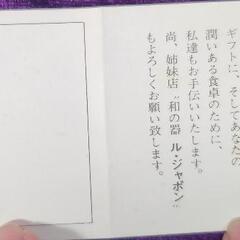 ギフトに、そしてあなたの
潤いある食卓のために、
私達もお手伝いいたします。
尚、姉妹店〝和の器 ル・ジャポン〟
もよろしくお願い致します。